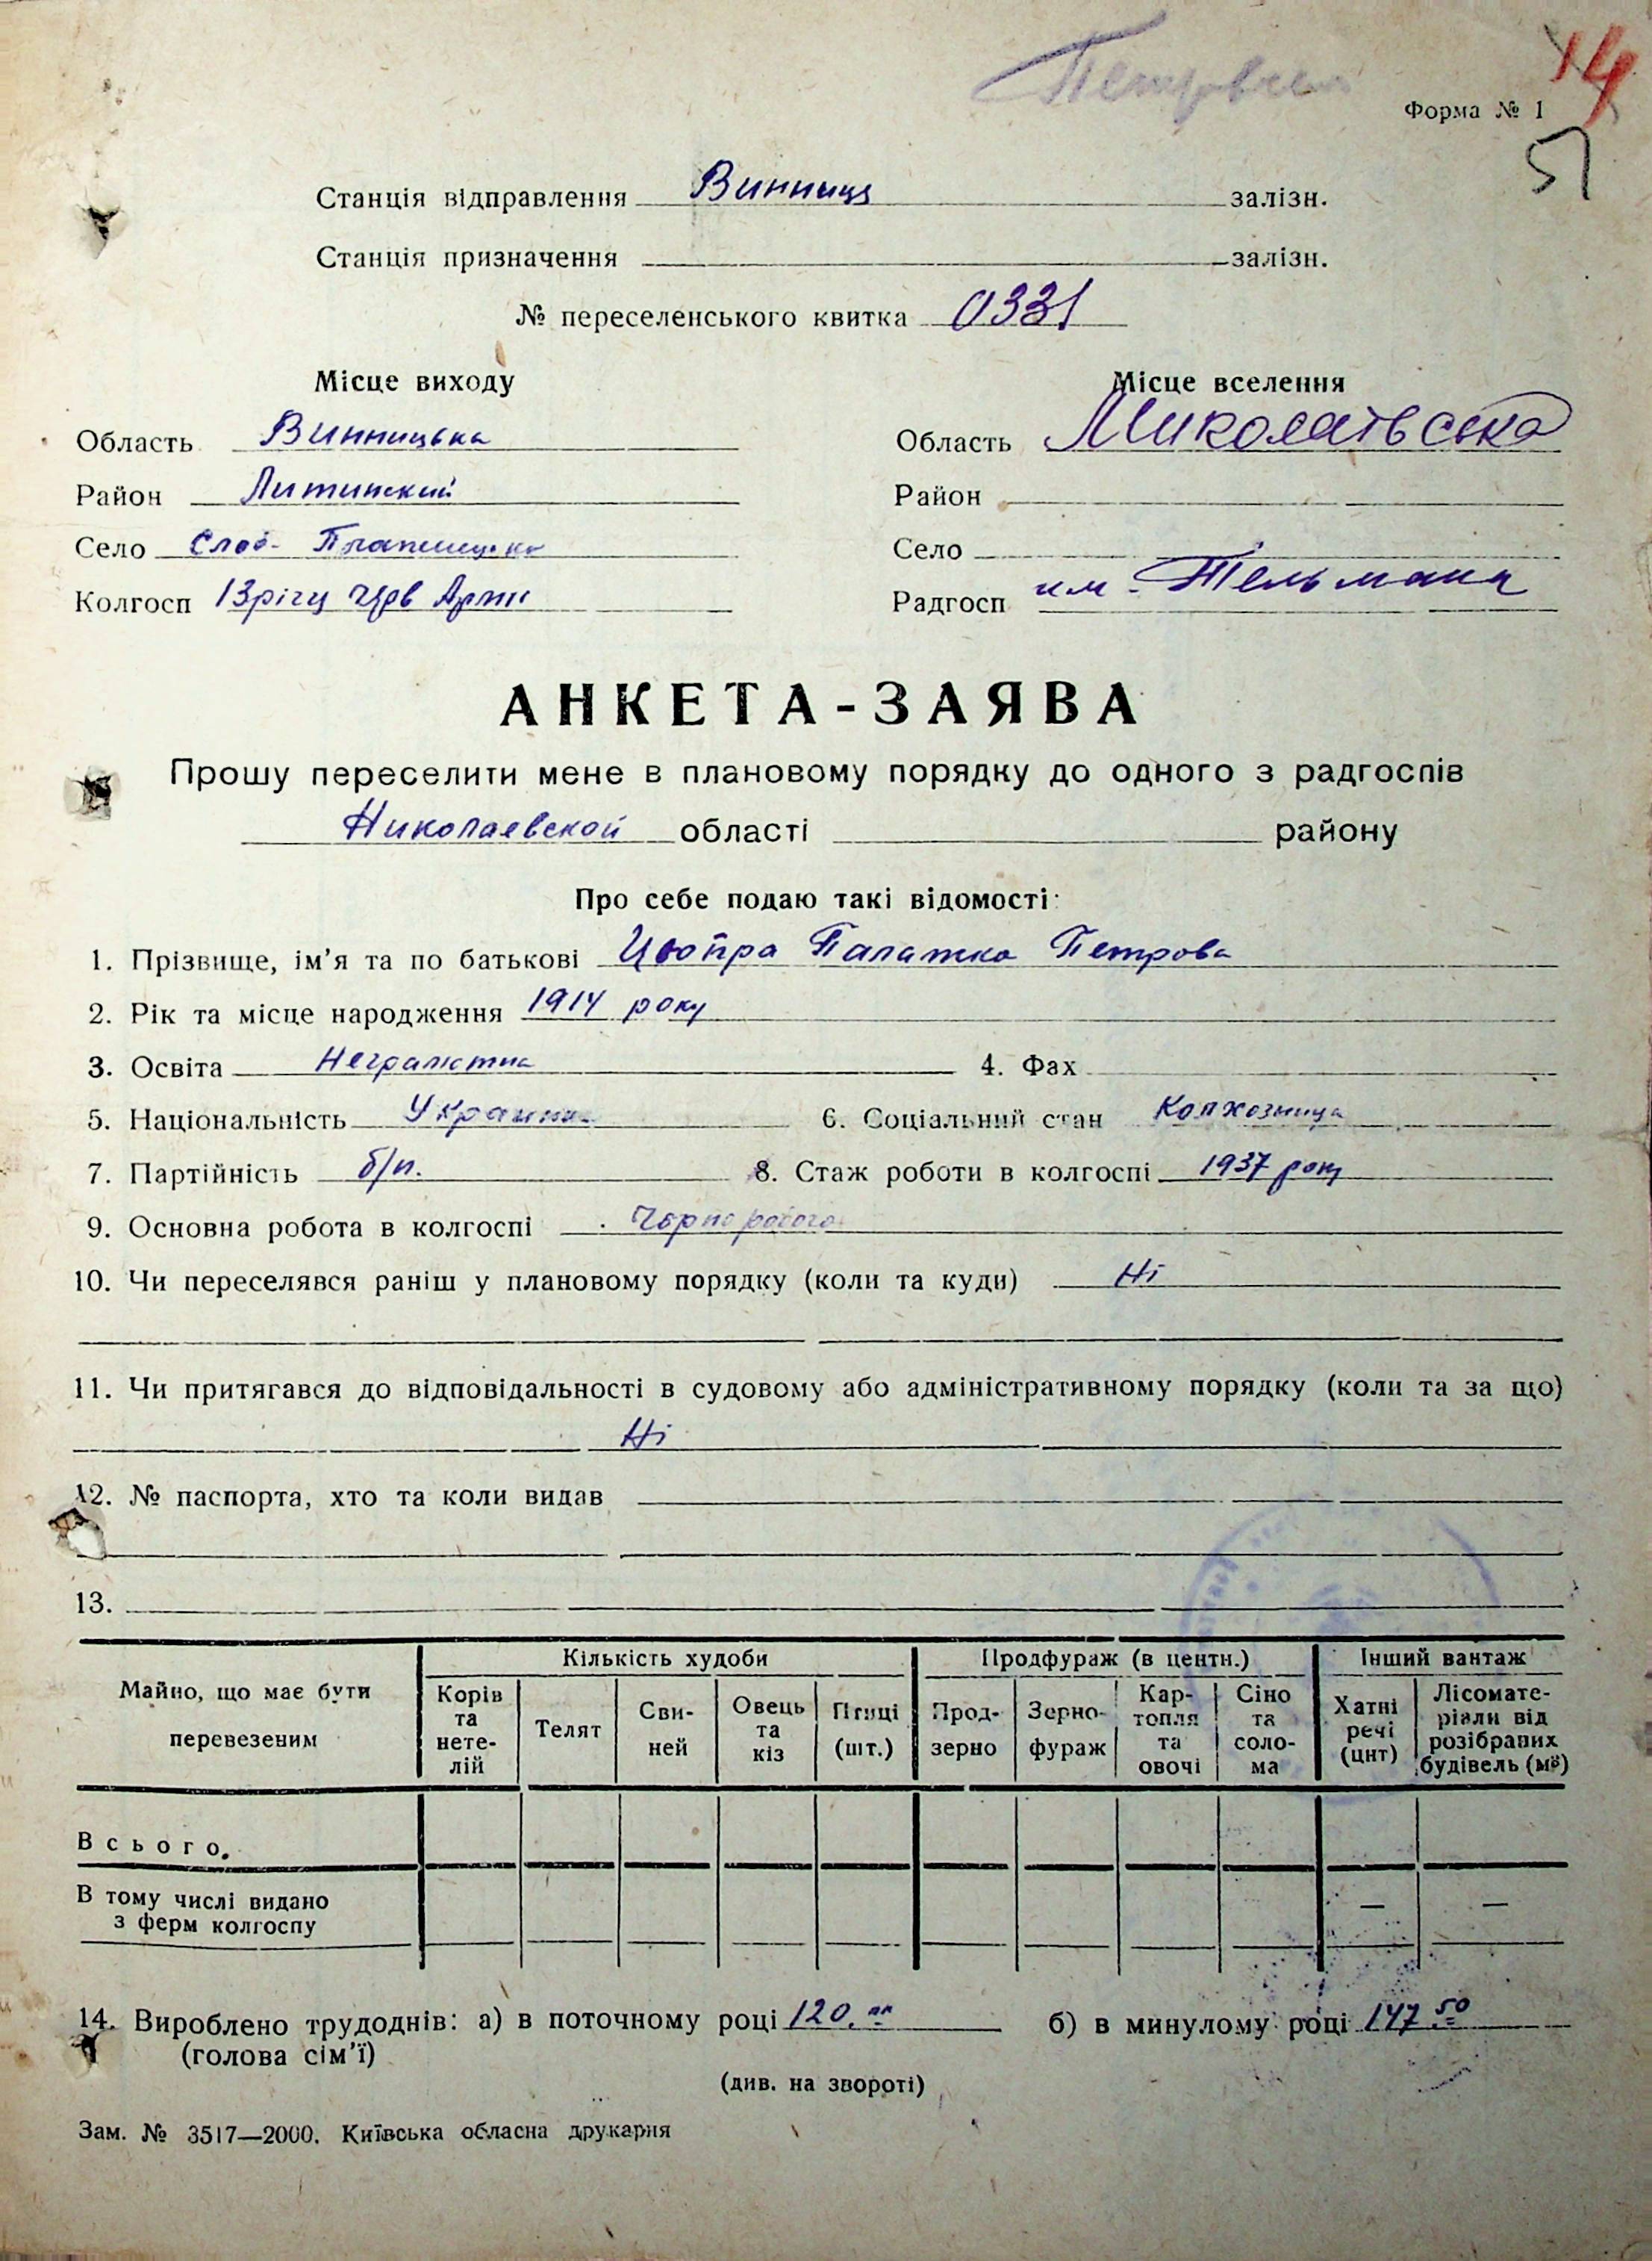 14
Форма № 1
51
Станція відправлення Винниця залізн.
Станція призначення залізн.
№ переселенського квитка 0331
Місце виходу Місце вселення
Область Винницька Область Миколаївська
Район Литинский Район
Село Слоб- Село
Колгосп 13річч Чрв Армн Радгосп им. Тельмана
АНКЕТА-ЗАЯВА
Прошу переселити мене в плановому порядку до одного з радгоспів
Николаевской області району
Про себе подаю такі відомості:
1. Прізвище, ім'я та по батькові Палажка Петрова
2. Рік та місце народження 1914 року
3. Освіта Неграмотна 4. Фах
5. Національність Украинка 6. Соціальний стан Колхозница
7. Партійність б/п. 8. Стаж роботи в колгоспі 1937 року
9. Основна робота в колгоспі
10. Чи переселявся раніш у плановому порядку (коли та куди) Ні
11. Чи притягався до відповідальності в судовому або адміністративному порядку (коли та за що)
Ні
12. № паспорта, хто та коли видав
13.
Майно, що має бути перевезеним
Кількість худоби Продфураж (в центн.) Інший вантаж
Корів та нетелій Телят Свиней Овець та кіз Птиці (шт.) Продзерно Зернофураж Картопля та овочі Сіно та солома Хатні речі (цнт) Лісоматеріали від розібраних будівель (м³)
Всього.
В тому числі видано
з ферм колгоспу — —
14. Вироблено трудоднів: а) в поточному році 120. б) в минулому році 147.50
(голова сім'ї)
(див. на звороті)
Зам. № 3517—2000. Київська обласна друкарня